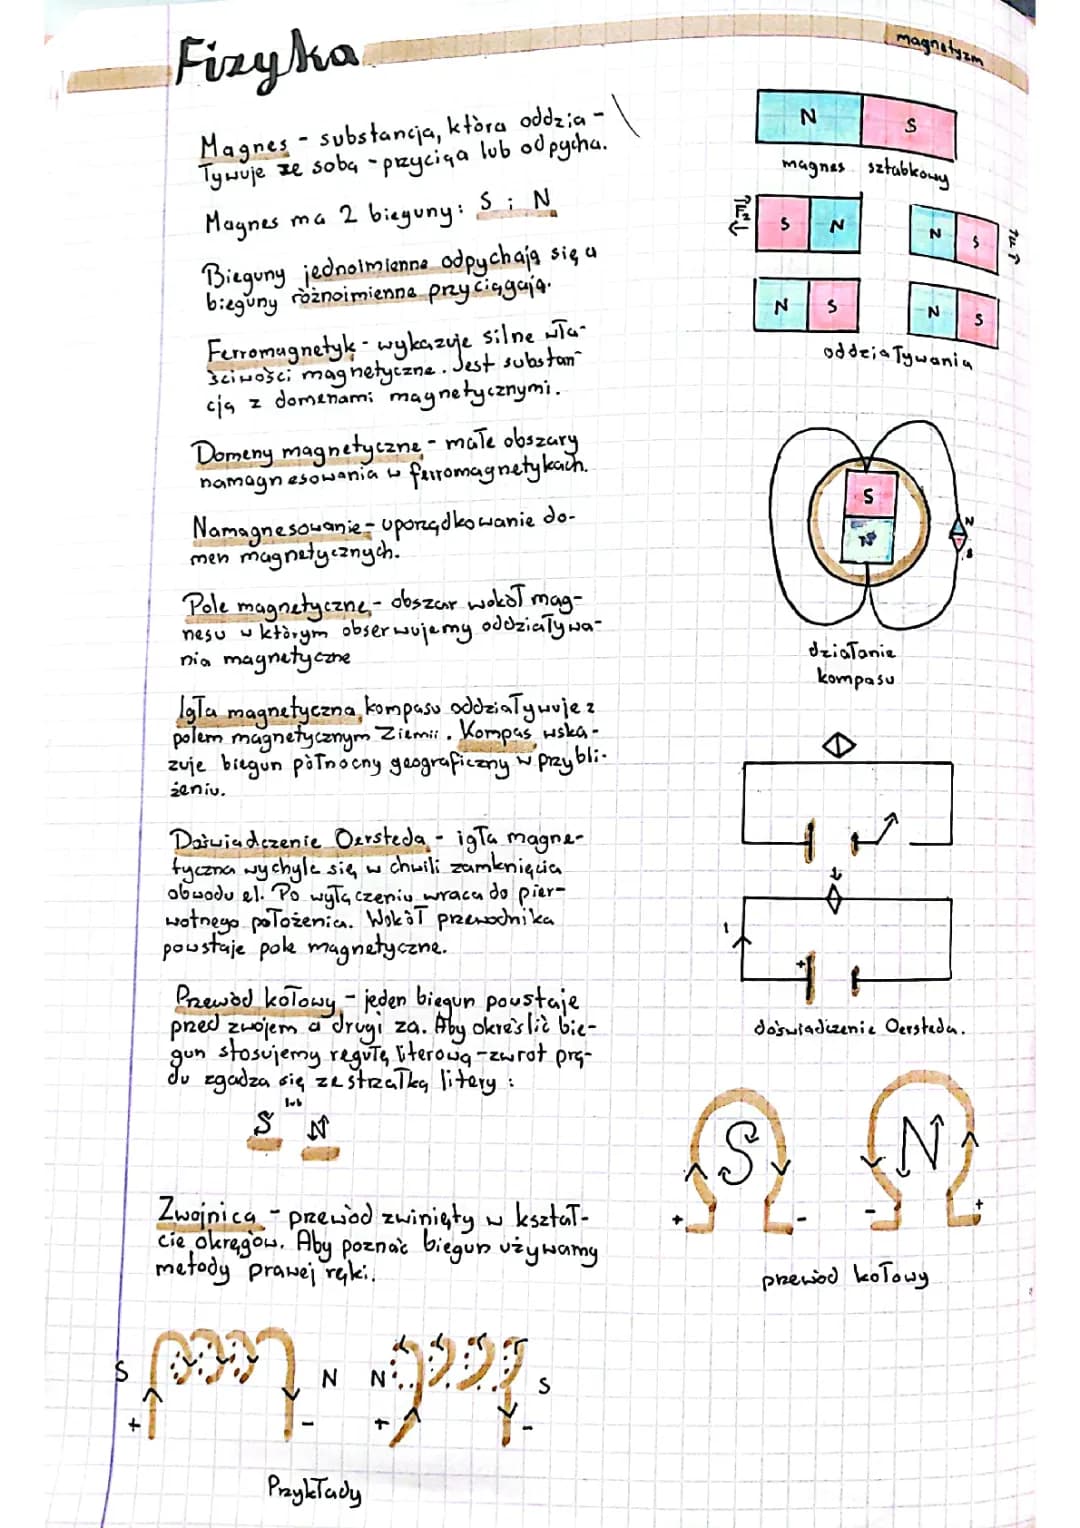 Fizyka
magnetyzm
Magnes - substancja, która oddzia-
ływuje ze sobą - przyciąga lub odpycha.
Magnes ma 2 bieguny: S i N
Bieguny jednoimienne odpychają się a
bieguny różnoimienne przyciągają.
Ferromagnetyk - wykazuje silne wła-
ściwości magnetyczne. Jest substan-
cją z domenami magnetycznymi.
Domeny magnetyczne - małe obszary
namagnesowania w ferromagnetykach.
Namagnesowanie - uporządkowanie do-
men magnetycznych.
Pole magnetyczne - obszar wokół mag-
nesu w którym obserwujemy oddziaływa-
nia magnetyczne
Igła magnetyczna kompasu oddziaływuje z
polem magnetycznym Ziemii. Kompas wska-
zuje biegun północny geograficzny w przybli-
żeniu.
Doświadczenie Oersteda - igła magne-
tyczna wychyla się w chwili zamknięcia
obwodu el. Po wyłączeniu wraca do pier-
wotnego położenia. Wokół przewodnika
powstaje pole magnetyczne.
Przewód kołowy - jeden biegun powstaje
przed zwojem a drugi za. Aby określić bie-
gun stosujemy regułę literową - zwrot prą-
du zgadza się ze strzałką litery:
S lub N
Zwojnica - przewód zwinięty w kształ-
cie okręgów. Aby poznać biegun używamy
metody prawej ręki.
S N N S
+ - + -
Przykłady
N S
magnes sztabkowy
S N N S
N S N S
oddziaływania
S
N
N
S
działanie
kompasu
I
+
doświadczenie Oersteda.
S N
+ - - +
przewód kołowy